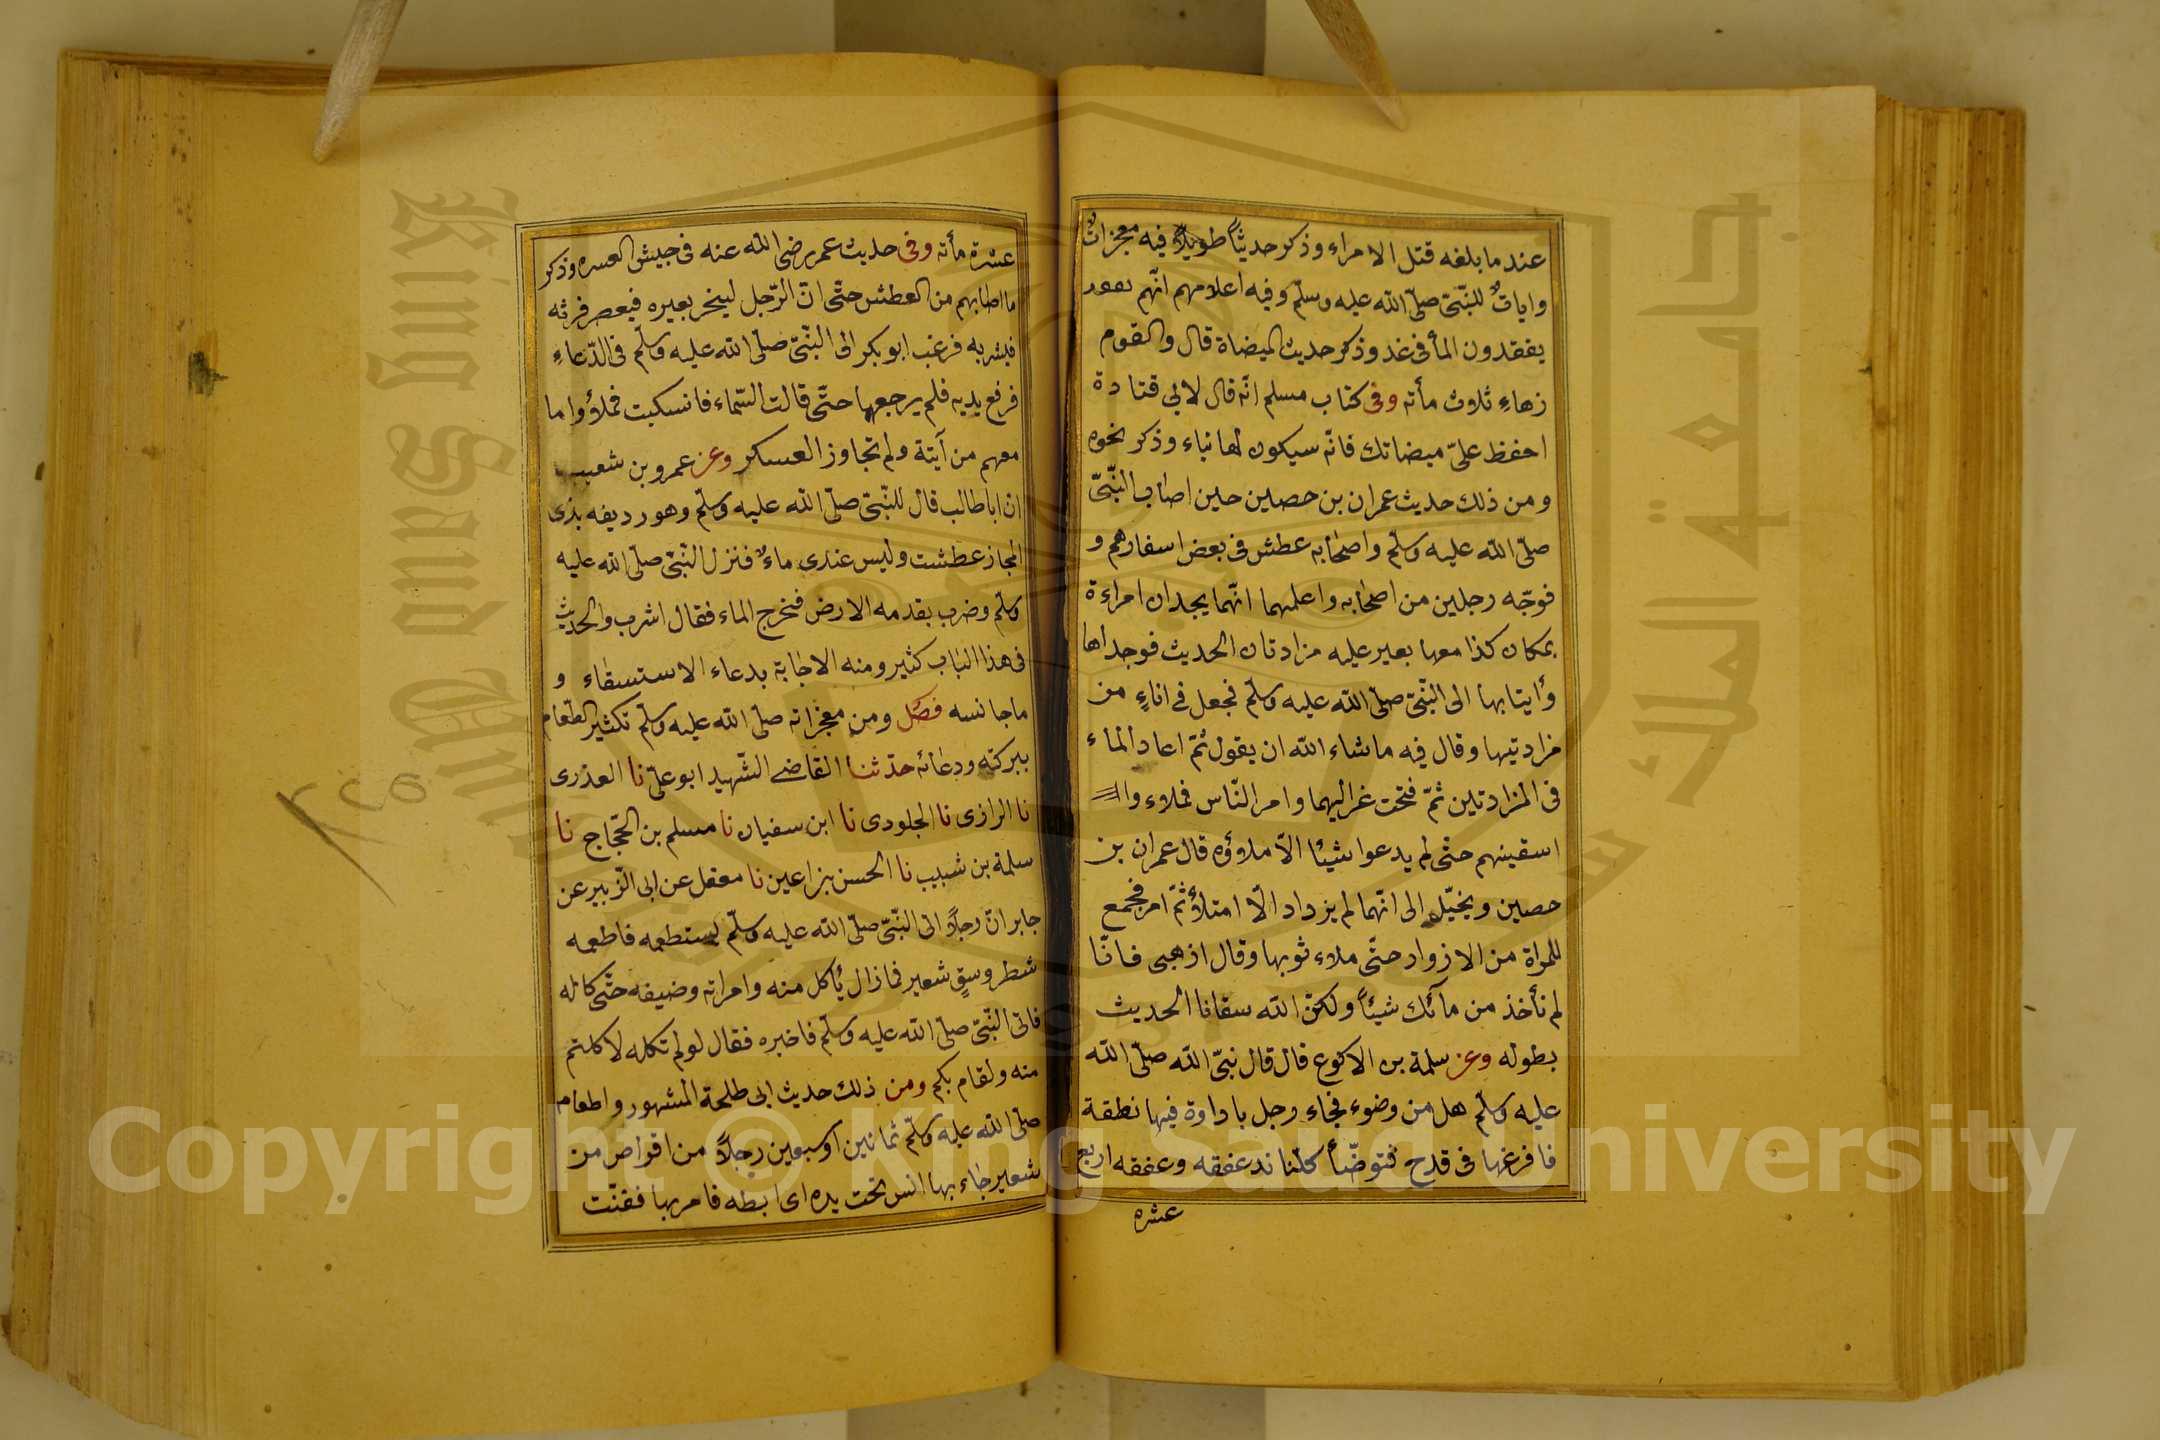 عندما بلغه قتل الامراء وذكر حديثاً طويلاً فيه معجزاتٌ
واياتٌ للنّبىّ صلّى الله عليه وسلّم وفيه اعلامهم انّهم
يفقدون المأ فى غد وذكر حديث الميضاة قال والقوم
زهاءِ ثلاث مأته وفى كتاب مسلم انّه قال لابى قتادة
احفظ علىّ ميضاتك فانّه سيكون لها نباء وذكر نحوه
ومن ذلك حديث عمران بن حصين حين اصاب النّبىّ
صلّى الله عليه وسلّم واصحابه عطش فى بعض اسفارهم و
فوجّه رجلين من اصحابه واعلمهما انّهما يجدان امراءة
بمكان كذا معها بعير عليه مزادتان الحديث فوجداها
وأيتابها الى النّبىّ صلّى الله عليه وسلّم فجعل فى اناءٍ من
مزادتيها وقال فيه ماشاء الله ان يقول ثمّ اعاد الماء
فى المزادتين ثمّ فتحت عزاليهما وامر النّاس فملاء وا
اسقيتهم حتّى لم يدعوا شيئا الاّ ملاؤه قال عمران بن
حصين ويخيّل الى انّهما لم يزداد الاّ امتلأ ثمّ امر فجمع
للمراة من الازواد حتّى ملاء ثوبها وقال اذهبى فانّا
لم نأخذ من مآئك شيئاً ولكنّ الله سقانا الحديث
بطوله وعن سلمة بن الاكوع قال قال نبىّ الله صلّى الله
عليه وسلّم هل من وضوء فجاء رجل باداوة فيها نطفة
فافرغها فى قدح فتوضّأ كلّنا ندغفقه وغفقه اربع
عشره
عشرة مأته وفى حديث عمر رضى الله عنه فى جيش العسره وذكر
ما اصابهم من العطش حتّى انّ الرّجل لينحر بعيره فيعصر فرثه
فيشربه فرغب ابوبكر الى النّبىّ صلّى الله عليه وسلّم فى الدّعاءِ
فرفع يديه فلم يرجعها حتّى قالت السّماء فانسكبت فملاؤا ما
معهم من آنية ولم تجاوز العسكر وعن عمرو بن شعيب
ان اباطالب قال للنّبىّ صلّى الله عليه وسلّم وهو رديفه بذى
المجاز عطشت وليس عندى ماءٌ فنزل النّبىّ صلّى الله عليه
وسلّم وضرب بقدمه الارض فخرج الماء فقال اشرب والحديث
فى هذا الباب كثير ومنه الاجابة بدعاء الاستسقاء و
ماجانسه فصل ومن معجزاته صلّى الله عليه وسلّم تكثير الطّعام
ببركته ودعائه حدّثنا القاضى الشّهيد ابو علىّ نا العذرى
نا الرازى نا الجلودى نا ابن سفيان نا مسلم بن الحجّاج نا
سلمة بن شبيب نا الحسن بن اعين نا معقل عن ابى الزّبير عن
جابر انّ رجلاً اتى النّبىّ صلّى الله عليه وسلّم يستطعمه فاطعمه
شطر وسقٍ شعير فمازال يُأكل منه وامراته وضيفه حتّى كاله
فاتى النّبىّ صلّى الله عليه وسلّم فاخبره فقال لولم تكله لاكلتم
منه ولقام بكم ومن ذلك حديث ابى طلحة المشهور واطعام
صلّى الله عليه وسلّم ثمانين او سبعين رجلاً من اقراص من
شعير جاء بها انس تحت يده اى ابطه فامر بها ففتّت
Copyright © King Saud University